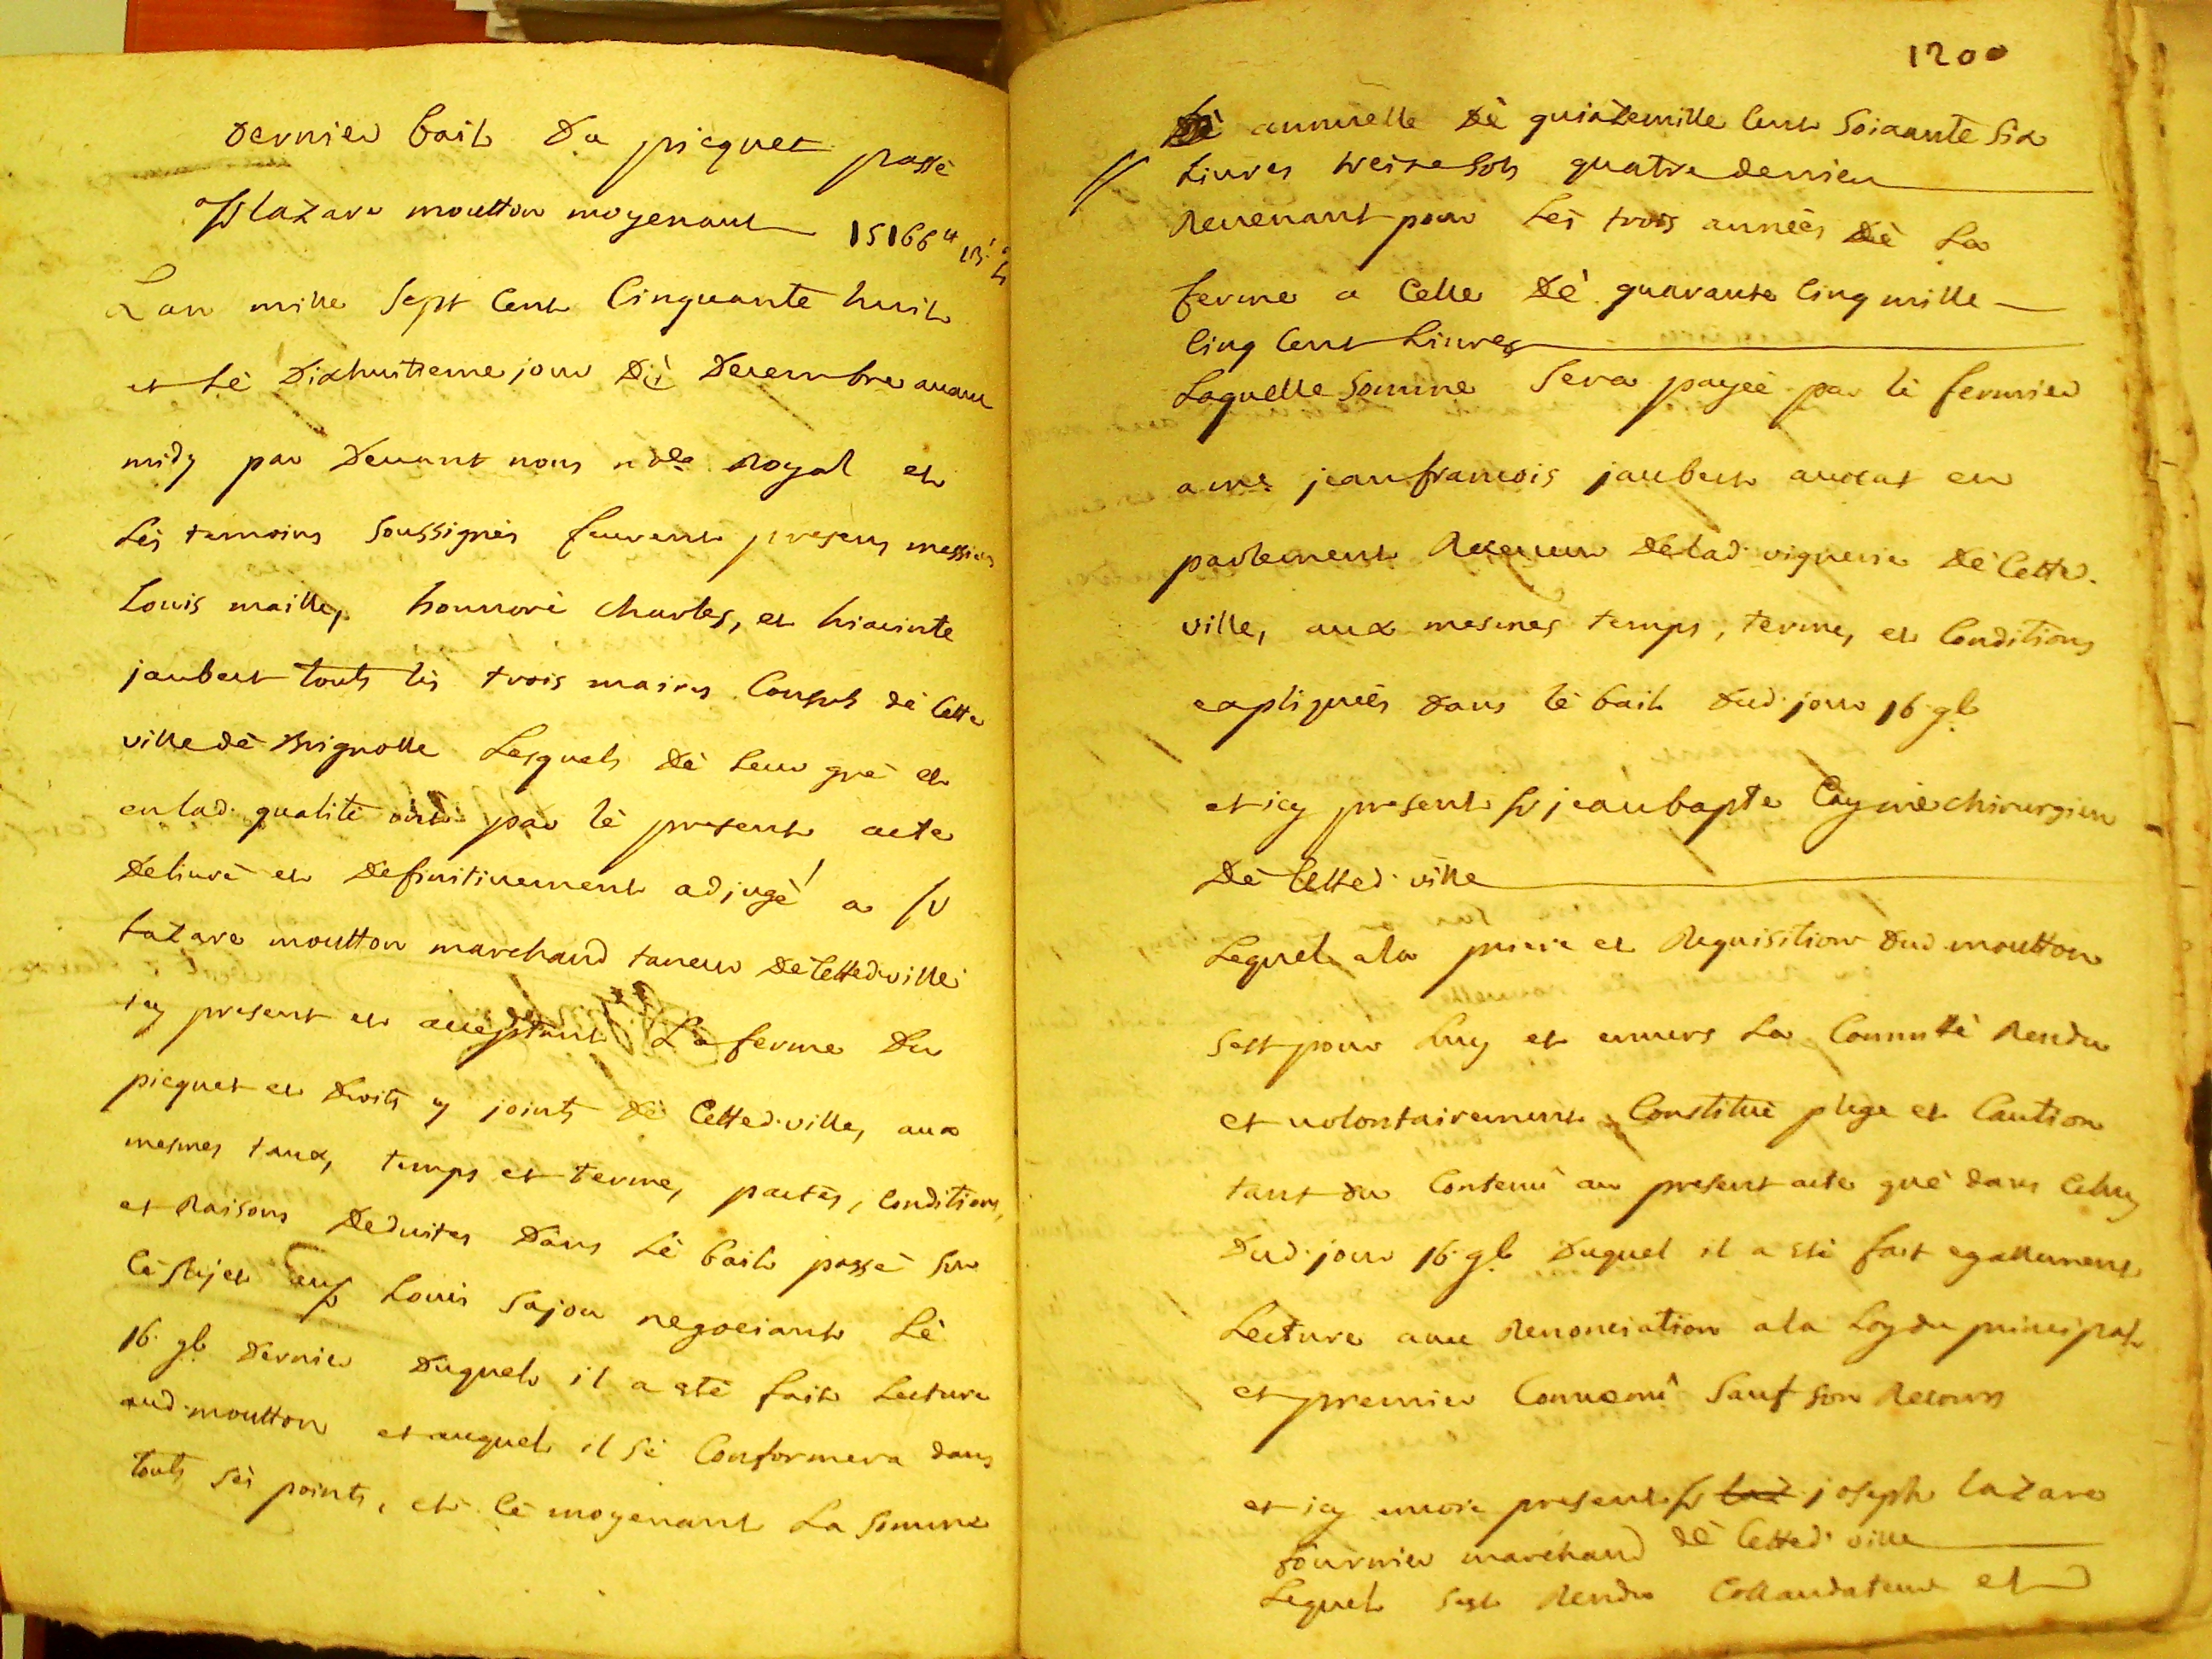 Dernier bail Du picquet passé
a sr lazare moutton moyenant 15166 lt 13 s 4
L'an mille sept cent cinquante huit
et lé Dixhuittieme jour Dé Decembre avant
midy par Devant nous nore Royal et
lés temoins soussignés feurent presens messieurs
Louis maille, honnoré charles, et hiacinte
jaubert touts lés trois maires consuls dé cette
ville dé Brignolle Lesquels Dé leur gré et
en lad. qualité ont par lé present acte
Delivré et Definitivement adjugé a sr
Lazare moutton marchand taneur Dé cetted. ville
icy present et acceptant La ferme Du
picquet et Droits y joints Dé cetted. ville, aux
mesmes taux, temps et terme, pactes, conditions,
et Raisons Deduites Dans Lé bail passé sur
cé sujet au sr Louis Sajou negociant Lé
16. 9b. Dernier Duquel il a eté fait Lecture
aud. moutton et auquel il sé conformera dans
touts sés points, et cé moyenant La somme
1200
Dé annuelle Dé quinze mille cent soixante six
Livres treize sols quatre deniers
Revenant pour Lés trois années Dé La
ferme a celle Dé quarante cinq mille
cinq cent Livres
Laquelle somme sera payée par lé fermier
a me. jean francois jaubert avocat en
parlement Receveur Delad. viguerie Dé cette.
ville, aux mesmes temps, terme, et conditions
expliqués dans lé bail dud. jour 16. 9b.
et icy present sr jean bapte Cay me chirurgien
Dé cetted. ville
Lequel a la priere et Requisition dud. moutton
sest pour Luy et envers La Communté Rendu
et volontairement constitué plege et Caution
tant du contenu au present acte qué dans celuy
Dud. jour 16. 9b. Duquel il a eté fait egallement
Lecture avec Renonciation a la Loy du principal
et premier Convenu sauf son Recours
et icy encore present sr laz joseph lazare
fournier marchand dé cetted. ville
Lequel sest Rendu Collaudateur et